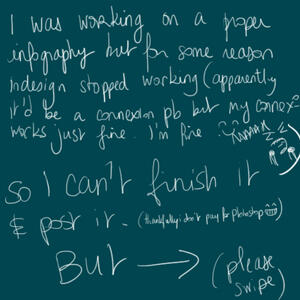 I was working on a proper
infography but for some reason
Indesign stopped working (apparently
it'd be a connexion pb but my connex°
works just fine. I'm fine.
So I can't finish it
& post it. (thankfully i don't pay for Photoshop
But → (please
swipe)